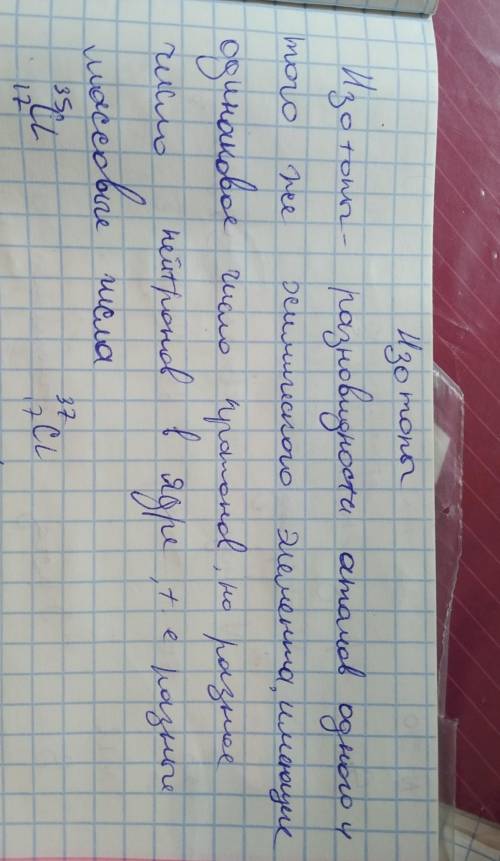 Изотопы
Изотопы - разновидности атомов одного и
того же химического элемента, имеющие
одинаковое число протонов, но разное
число нейтронов в ядре, т. е разные
массовые числа
³⁵₁₇Cl ³⁷₁₇Cl